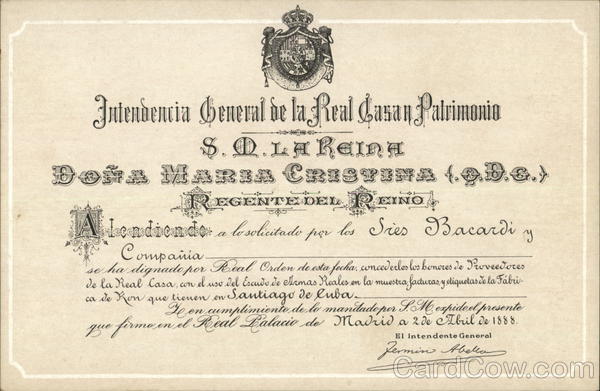 Intendencia General de la Real Casa y Patrimonio
S. M. LA REINA
DOÑA MARIA CRISTINA (.Q.D.G.)
REGENTE DEL REINO
Atendiendo a lo solicitado por los Sres Bacardi y
Compañia
se ha dignado por Real Orden de esta fecha, concederles los honores de Proveedores
de la Real Casa, con el uso del Escudo de Armas Reales en la muestra, facturas, y etiquetas de la Fábri-
ca de Ron que tienen en Santiago de Cuba.
Y en cumplimiento de lo mandado por S. M. expido el presente
que firmo en el Real Palacio de Madrid a 2 de Abril de 1888.
El Intendente General
Fermin Abella
CardCow.com